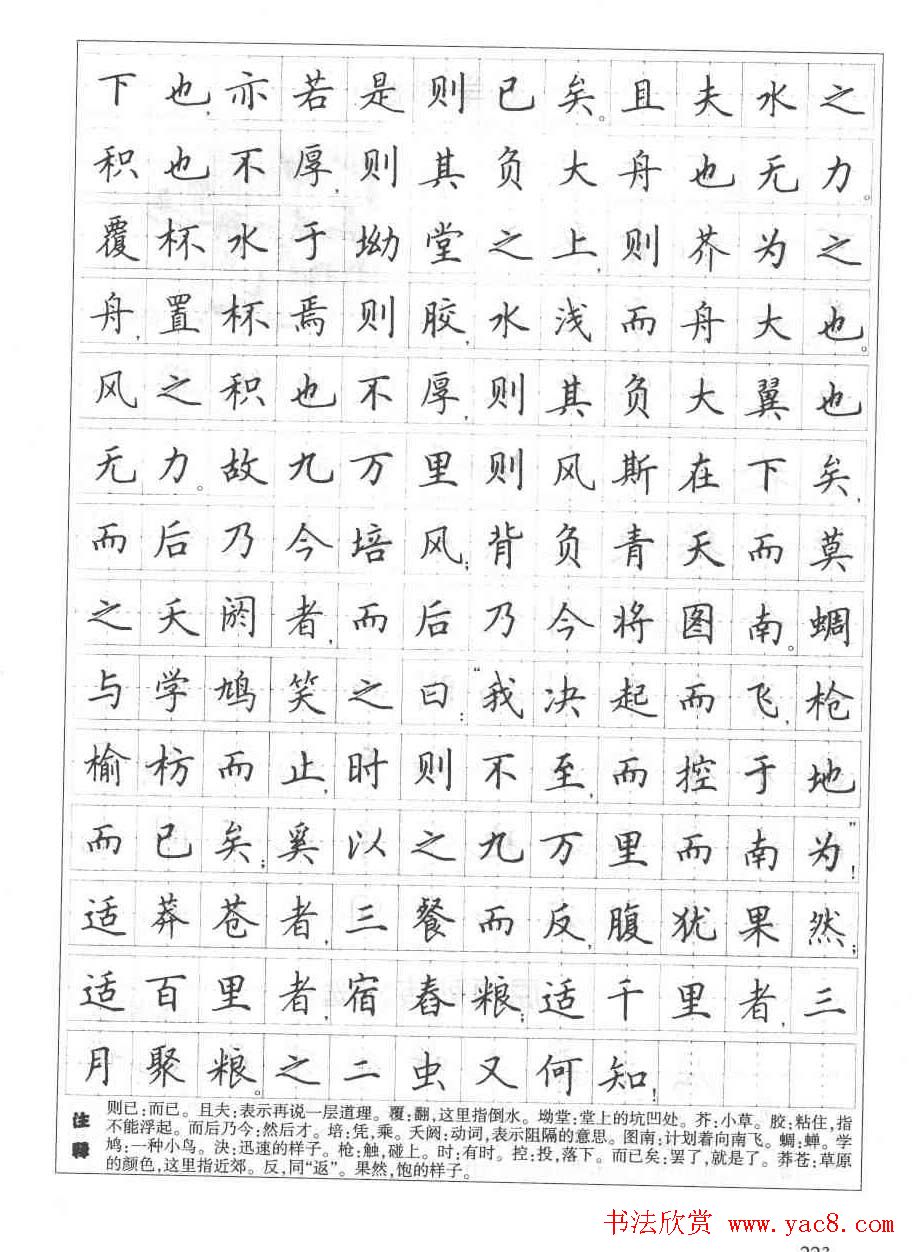 下也,亦若是则已矣。且夫水之
积也不厚,则其负大舟也无力。
覆杯水于坳堂之上,则芥为之
舟,置杯焉则胶,水浅而舟大也。
风之积也不厚,则其负大翼也
无力。故九万里则风斯在下矣,
而后乃今培风;背负青天而莫
之夭阏者,而后乃今将图南。蜩
与学鸠笑之曰:“我决起而飞,枪
榆枋而止,时则不至,而控于地
而已矣;奚以之九万里而南为”!
适莽苍者,三餐而反,腹犹果然;
适百里者,宿舂粮;适千里者,三
月聚粮。之二虫又何知!
注释
则已:而已。且夫:表示再说一层道理。覆:翻,这里指倒水。坳堂:堂上的坑凹处。芥:小草。胶:粘住,指
不能浮起。而后乃今:然后才。培:凭,乘。夭阏:动词,表示阻隔的意思。图南:计划着向南飞。蜩:蝉。学
鸠:一种小鸟。決:迅速的样子。枪:触,碰上。时:有时。控:投,落下。而已矣:罢了,就是了。莽苍:草原
的颜色,这里指近郊。反,同“返”。果然,饱的样子。
书法欣赏 www.yac8.com